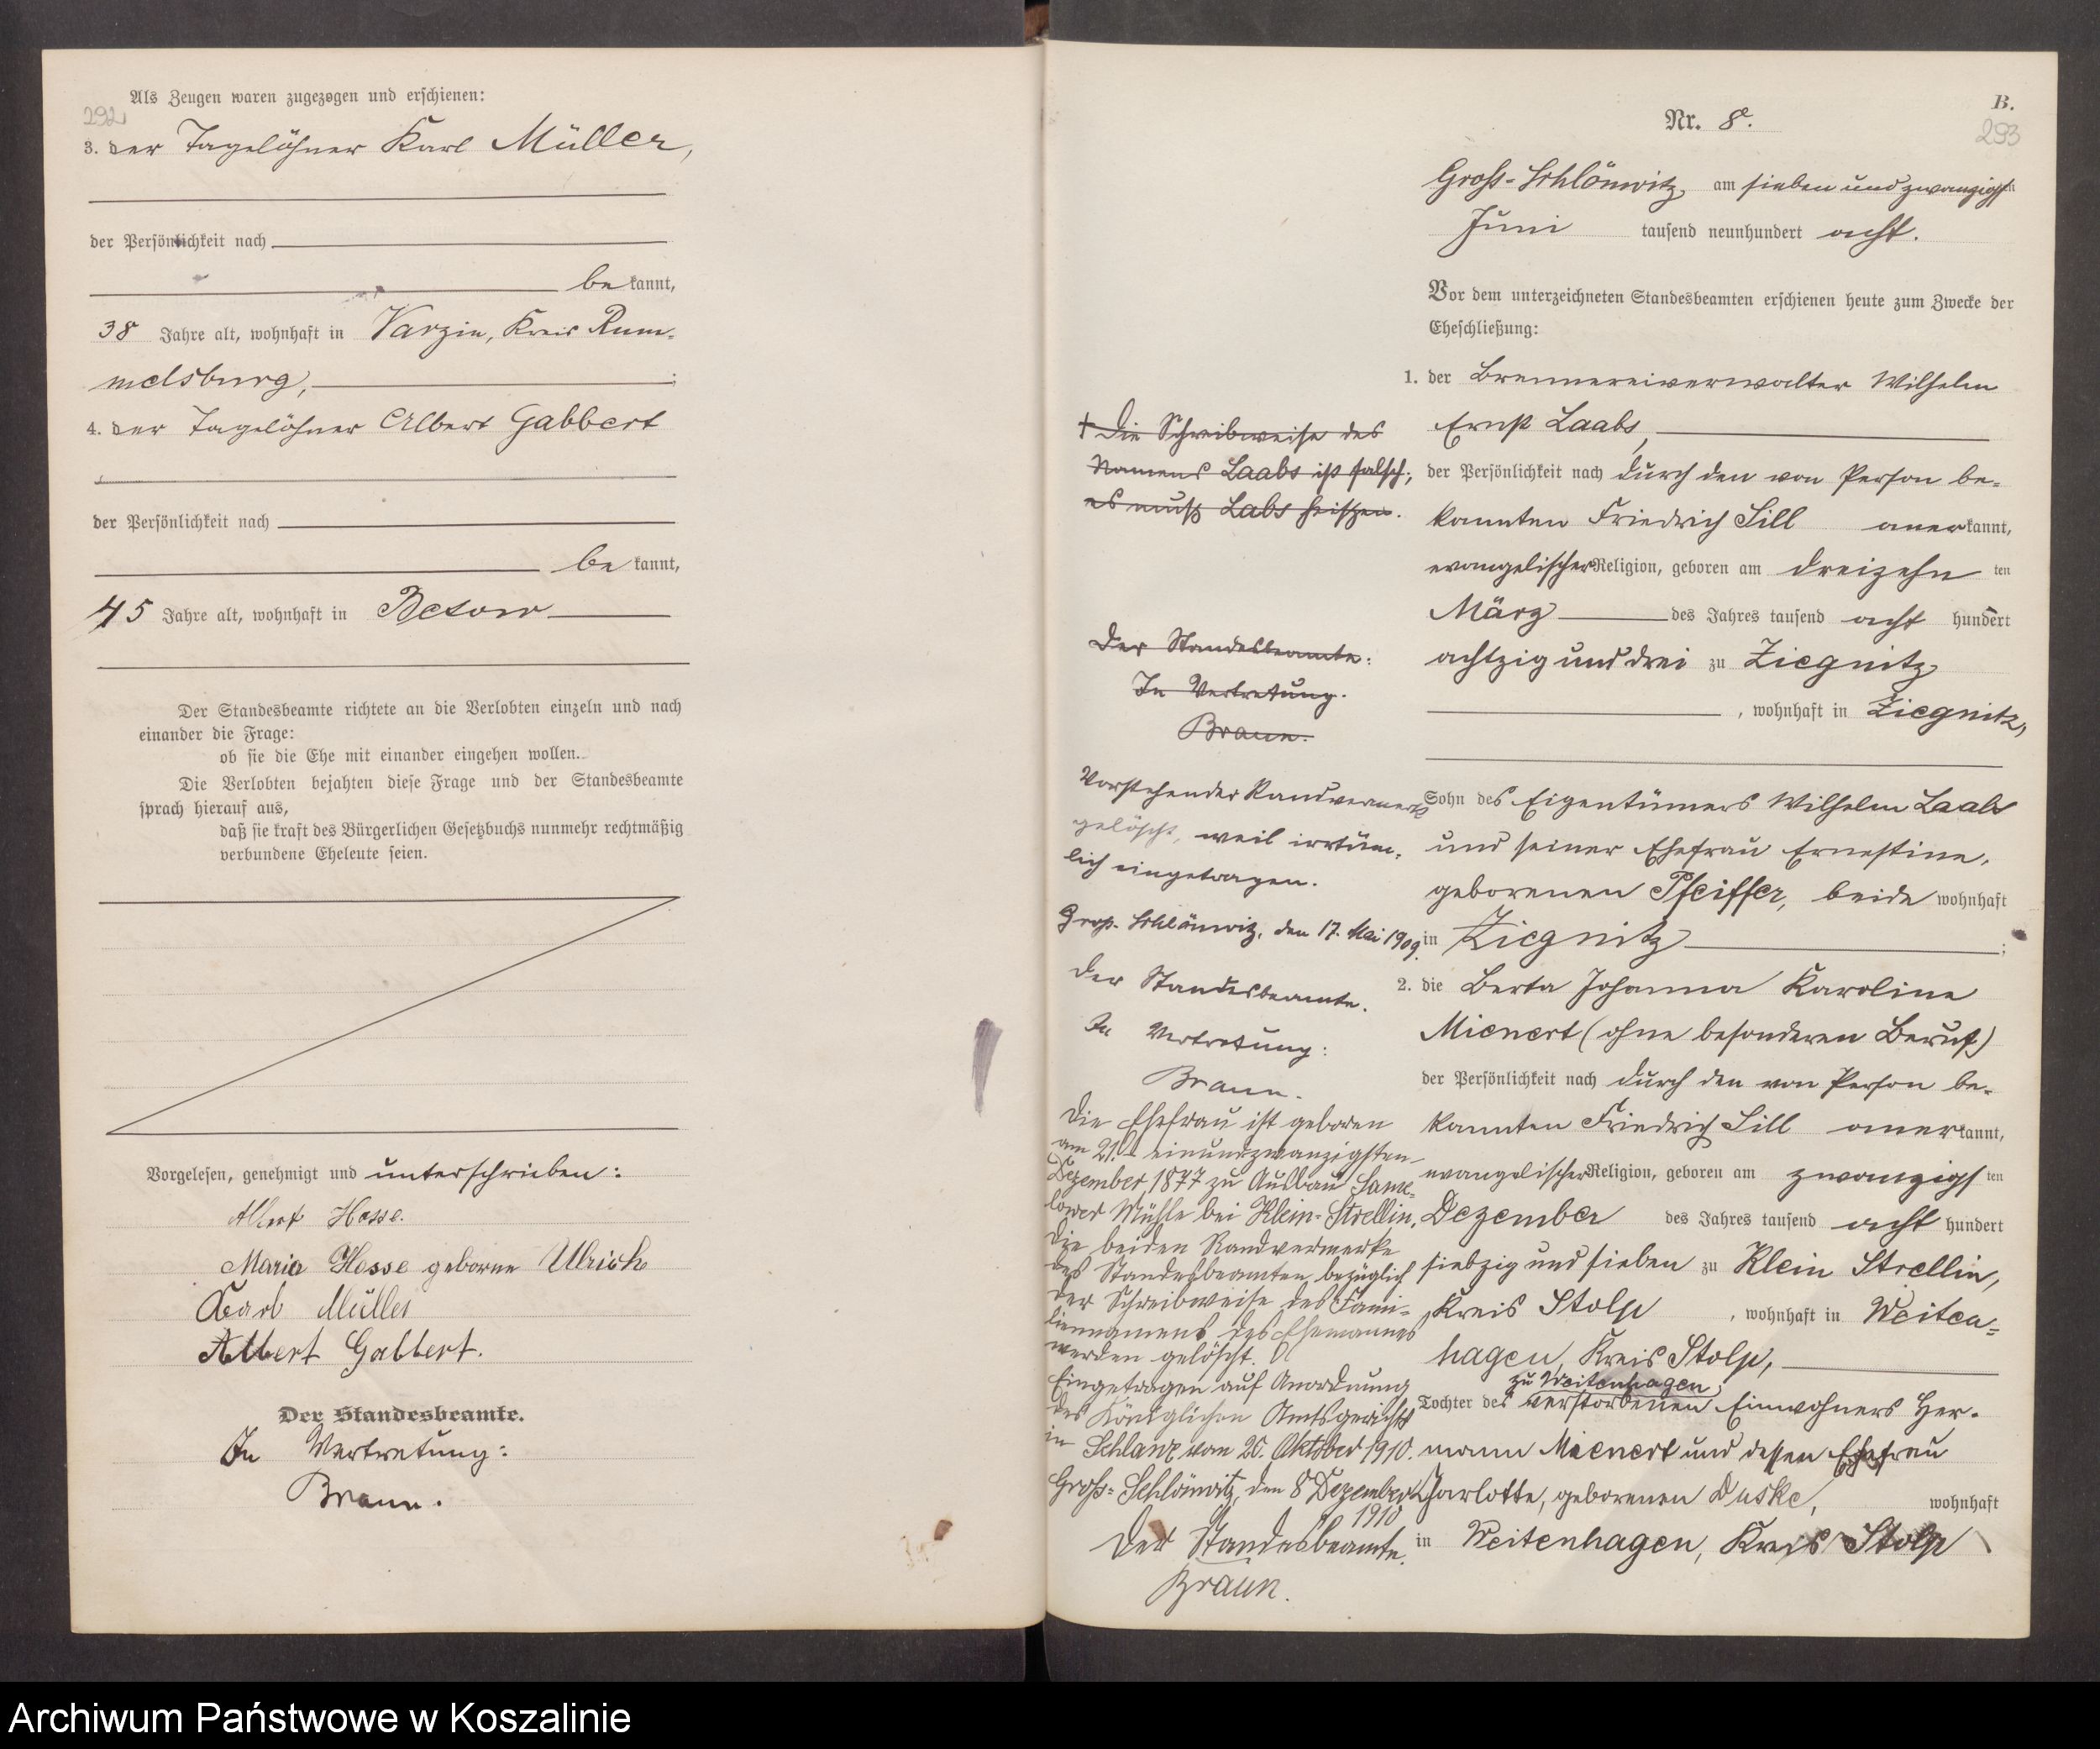 292
Als Zeugen waren zugezogen und erschienen:
3. der Tagelöhner Karl Müller,
der Persönlichkeit nach
be kannt,
38 Jahre alt, wohnhaft in Varzin, Kreis Rum-
melsburg,
4. der Tagelöhner Albert Gabbert
der Persönlichkeit nach
be kannt,
45 Jahre alt, wohnhaft in Besow
Der Standesbeamte richtete an die Verlobten einzeln und nach
einander die Frage:
ob sie die Ehe mit einander eingehen wollen.
Die Verlobten bejahten diese Frage und der Standesbeamte
sprach hierauf aus,
daß sie kraft des Bürgerlichen Gesetzbuchs nunmehr rechtmäßig
verbundene Eheleute seien.
Vorgelesen, genehmigt und unterschrieben:
Albert Hasse.
Maria Hasse geborne Ulrich
Karl Müller
Albert Gabbert.
Der Standesbeamte.
In Vertretung:
Braun.
B.
Nr. 8.
293
Groß-Schlönwitz, am sieben und zwanzigsten
Juni tausend neunhundert acht.
Vor dem unterzeichneten Standesbeamten erschienen heute zum Zwecke der
Eheschließung:
1. der Brennereiverwalter Wilhelm
Ernst Laabs,
der Persönlichkeit nach durch den von Person be-
kannten Friedrich Sill anerkannt,
evangelischer Religion, geboren am dreizehn ten
März des Jahres tausend acht hundert
achtzig und drei zu Ziegnitz
, wohnhaft in Ziegnitz,
Sohn des Eigentümers Wilhelm Laabs
und seiner Ehefrau Ernestine,
geborenen Pfeiffer, beide wohnhaft
in Ziegnitz ;
2. die Berta Johanna Karoline
Mienert (ohne besonderen Beruf)
der Persönlichkeit nach durch den von Person be-
kannten Friedrich Sill anerkannt,
evangelischer Religion, geboren am zwanzigs ten
Dezember des Jahres tausend acht hundert
siebzig und sieben zu Klein Strellin,
Kreis Stolp , wohnhaft in Weiten-
hagen, Kreis Stolp,
zu Weitenhagen
Tochter des verstorbenen Einwohners Her-
mann Mienert und dessen Ehefrau
Charlotte, geborenen Duske, wohnhaft
in Weitenhagen, Kreis Stolp
+ Die Schreibweise des
Namens Laabs ist falsch;
es muß Labs heißen.
Der Standesbeamte:
In Vertretung.
Braun.
Vorstehender Randvermerk
gelöscht, weil irrtüm-
lich eingetragen.
Groß-Schlönwitz, den 17. Mai 1909.
Der Standesbeamte.
In Vertretung:
Braun.
Die Ehefrau ist geboren
am 21. einundzwanzigsten
Dezember 1877 zu Ausbau
Mühle bei Klein-Strellin.
Die beiden Randvermerke
des Standesbeamten bezüglich
der Schreibweise des Fami-
liennamens des Ehemannes
werden gelöscht.
Eingetragen auf Anordnung
des Königlichen Amtsgerichts
in Schlawe vom 26. Oktober 1910.
Groß-Schlönwitz, den 8 Dezember
1910
Der Standesbeamte.
Braun.
Archiwum Państwowe w Koszalinie